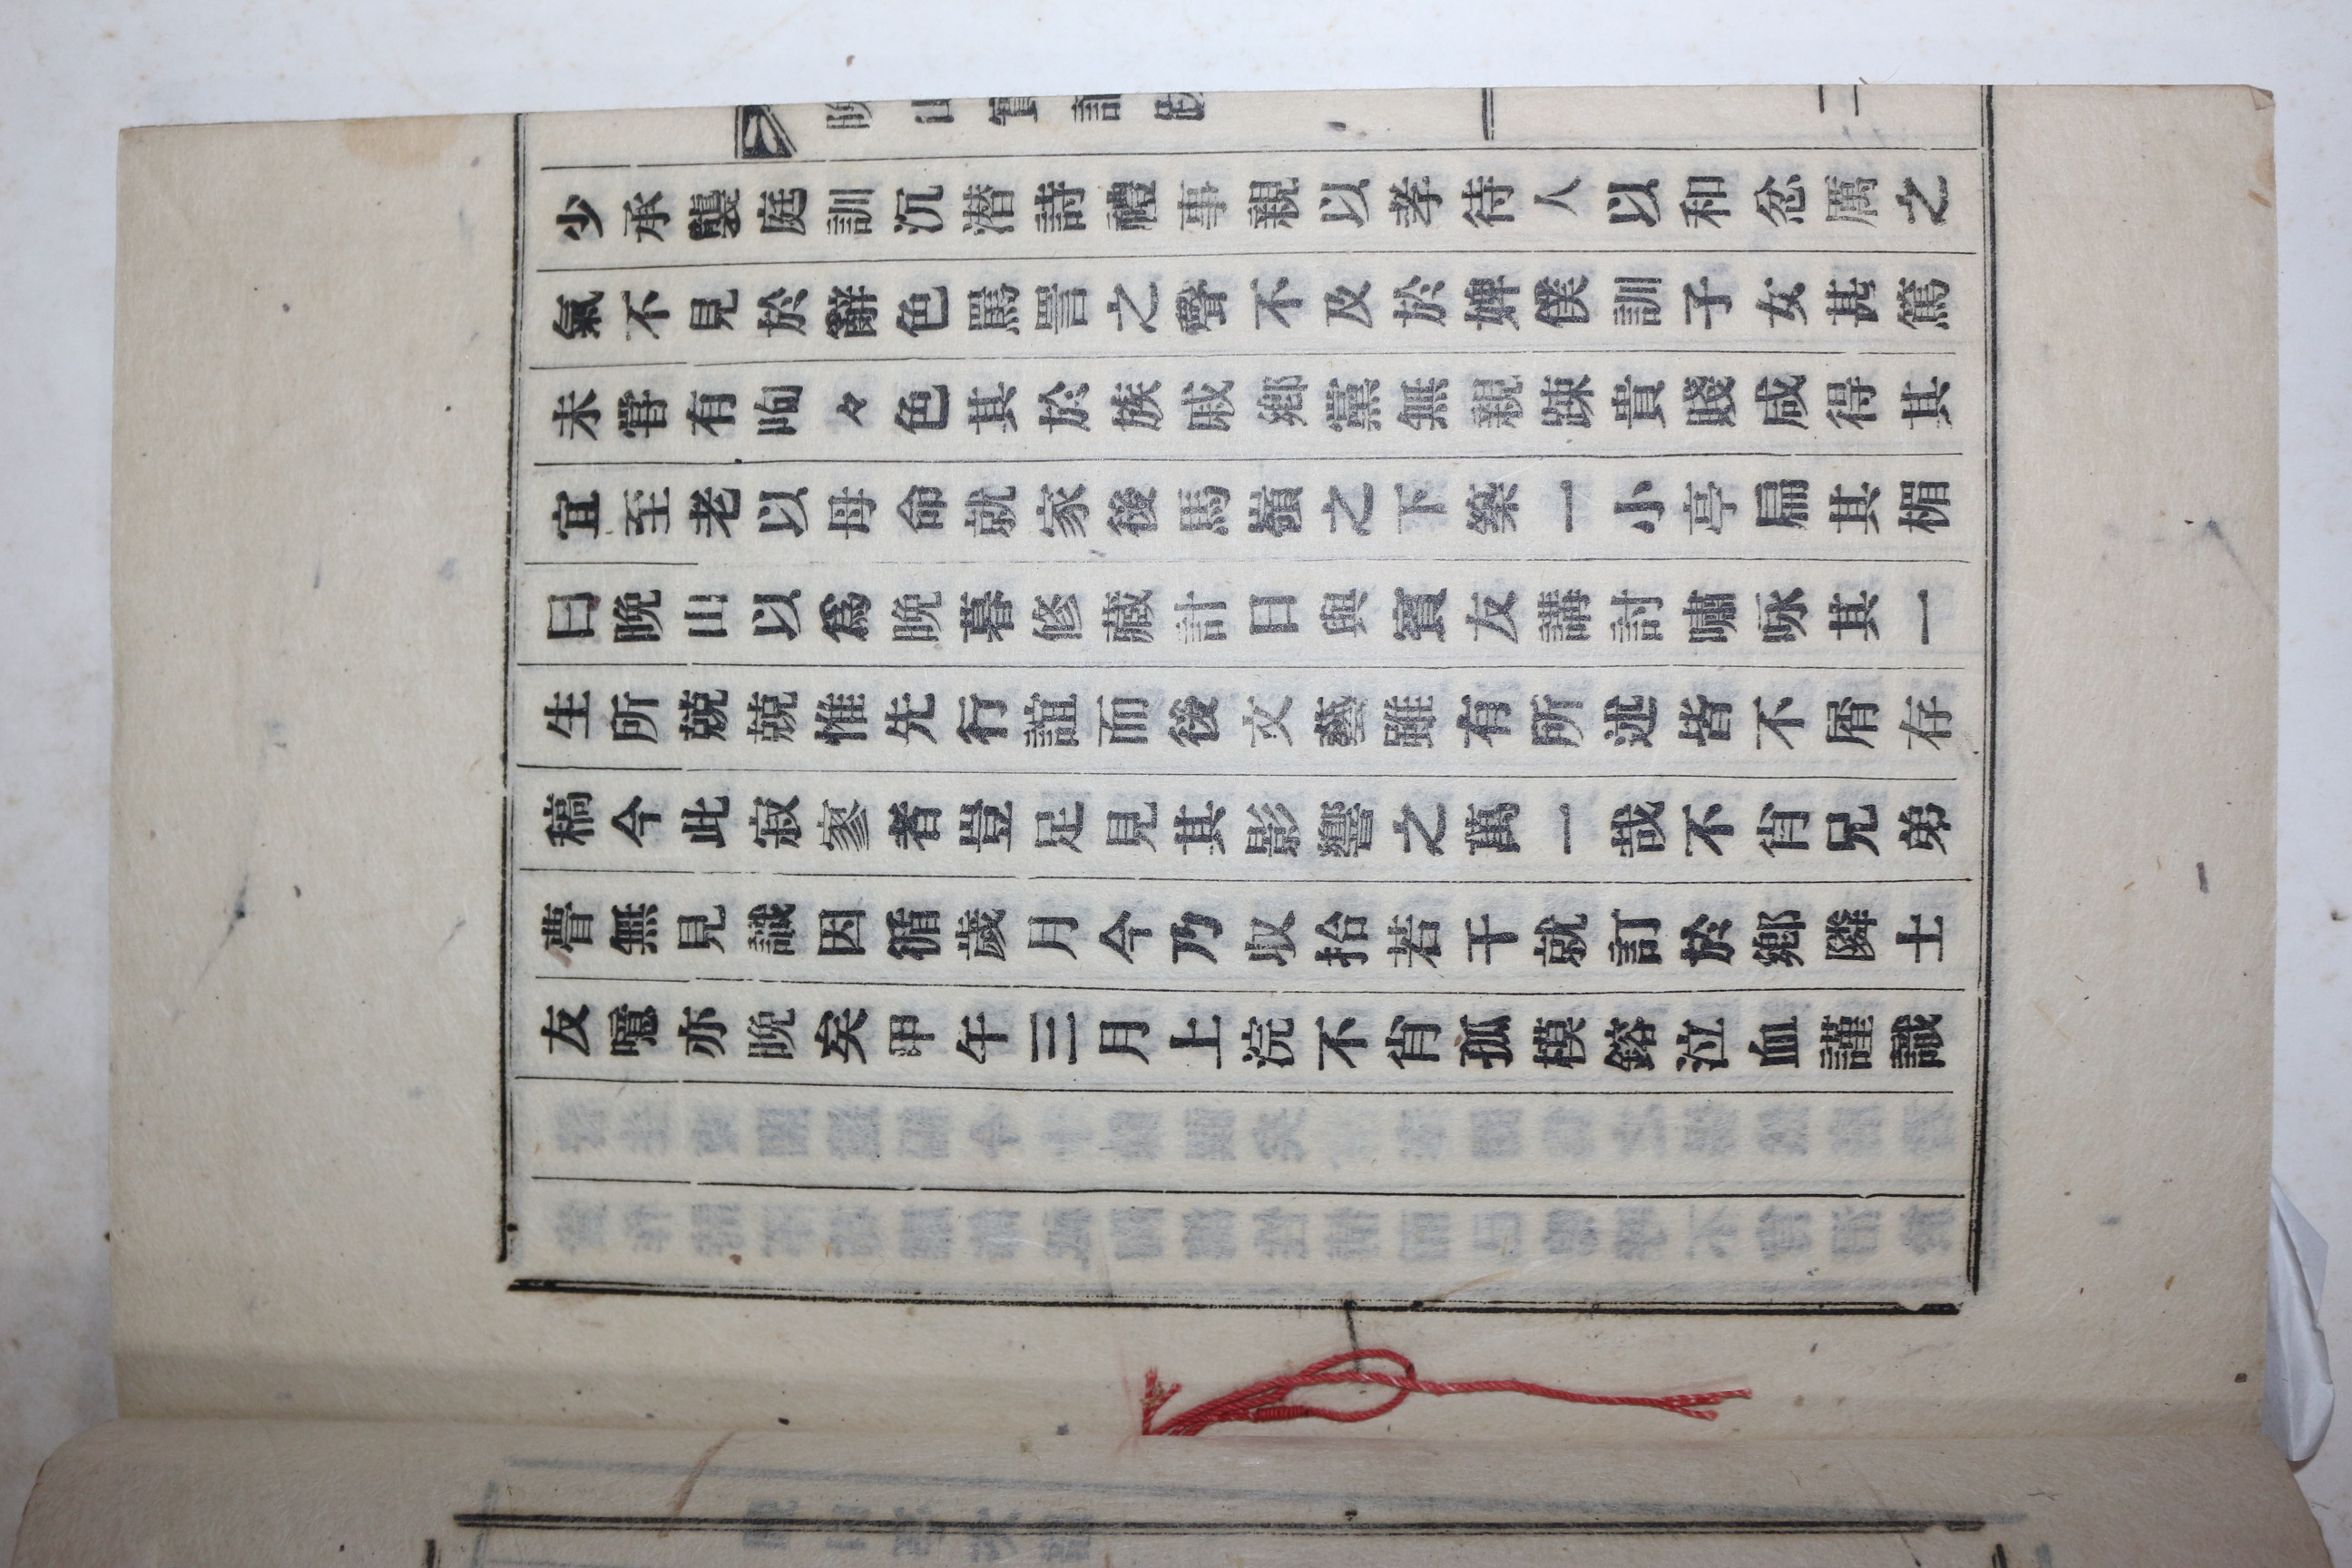 少承襲庭訓沉潜詩禮事親以孝待人以和忿厲之
氣不見於辭色罵詈之聲不及於婢僕訓子女甚篤
未嘗有呴々色其於族戚鄕黨無親踈貴賤咸得其
宜至老以母命就家後馬嶺之下築一小亭扁其楣
曰晩山以爲晩暮修藏計日與賓友講討嘯咏其一
生所兢兢惟先行誼而後文藝雖有所述皆不屑存
稿今此寂寥者豈足見其影響之萬一哉不肖兄弟
瞢無見識因循歲月今乃收拾若干就訂於鄕隣士
友噫亦晩矣甲午三月上浣不肖孤模鎔泣血謹識